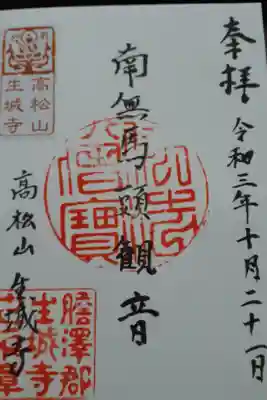 奉拝
令和三年十月二十一日
南無馬頭観音
高松山生城寺
高松山
生城寺
膽澤郡
生城寺